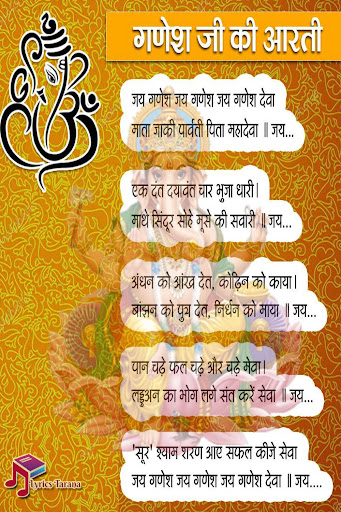 गणेश जी की आरती
जय गणेश जय गणेश जय गणेश देवा
माता जाकी पार्वती पिता महादेवा ॥ जय...
एक दंत दयावंत चार भुजा धारी।
माथे सिंदूर सोहे मूसे की सवारी ॥ जय...
अंधन को आंख देत, कोढ़िन को काया।
बांझन को पुत्र देत, निर्धन को माया ॥ जय...
पान चढ़े फल चढ़े और चढ़े मेवा।
लड्डुअन का भोग लगे संत करें सेवा ॥ जय...
'सूर' श्याम शरण आए सफल कीजे सेवा
जय गणेश जय गणेश जय गणेश देवा ॥ जय....
Lyrics Tarana